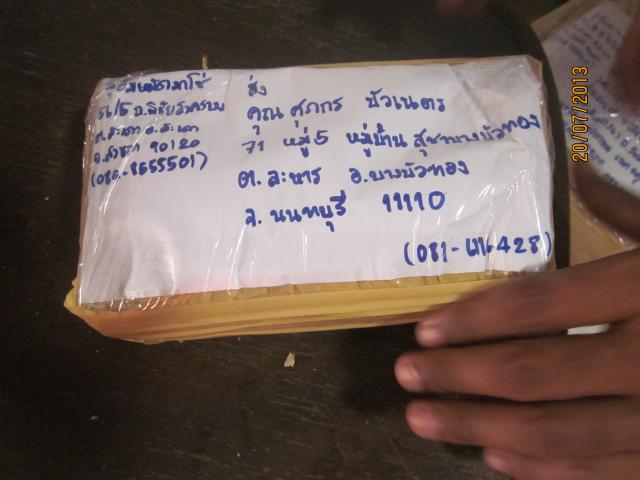 56/5 ถ.
ต.สะเดา อ.สะเดา
จ.สงขลา 90120
(086-8655501)
ส่ง
คุณ ศุภกร บัวเนตร
71 หมู่5 หมู่บ้าน สุชาบางบัวทอง
ต. ละหาร อ.บางบัวทอง
จ. นนทบุรี 11110
(081-
20/07/2013